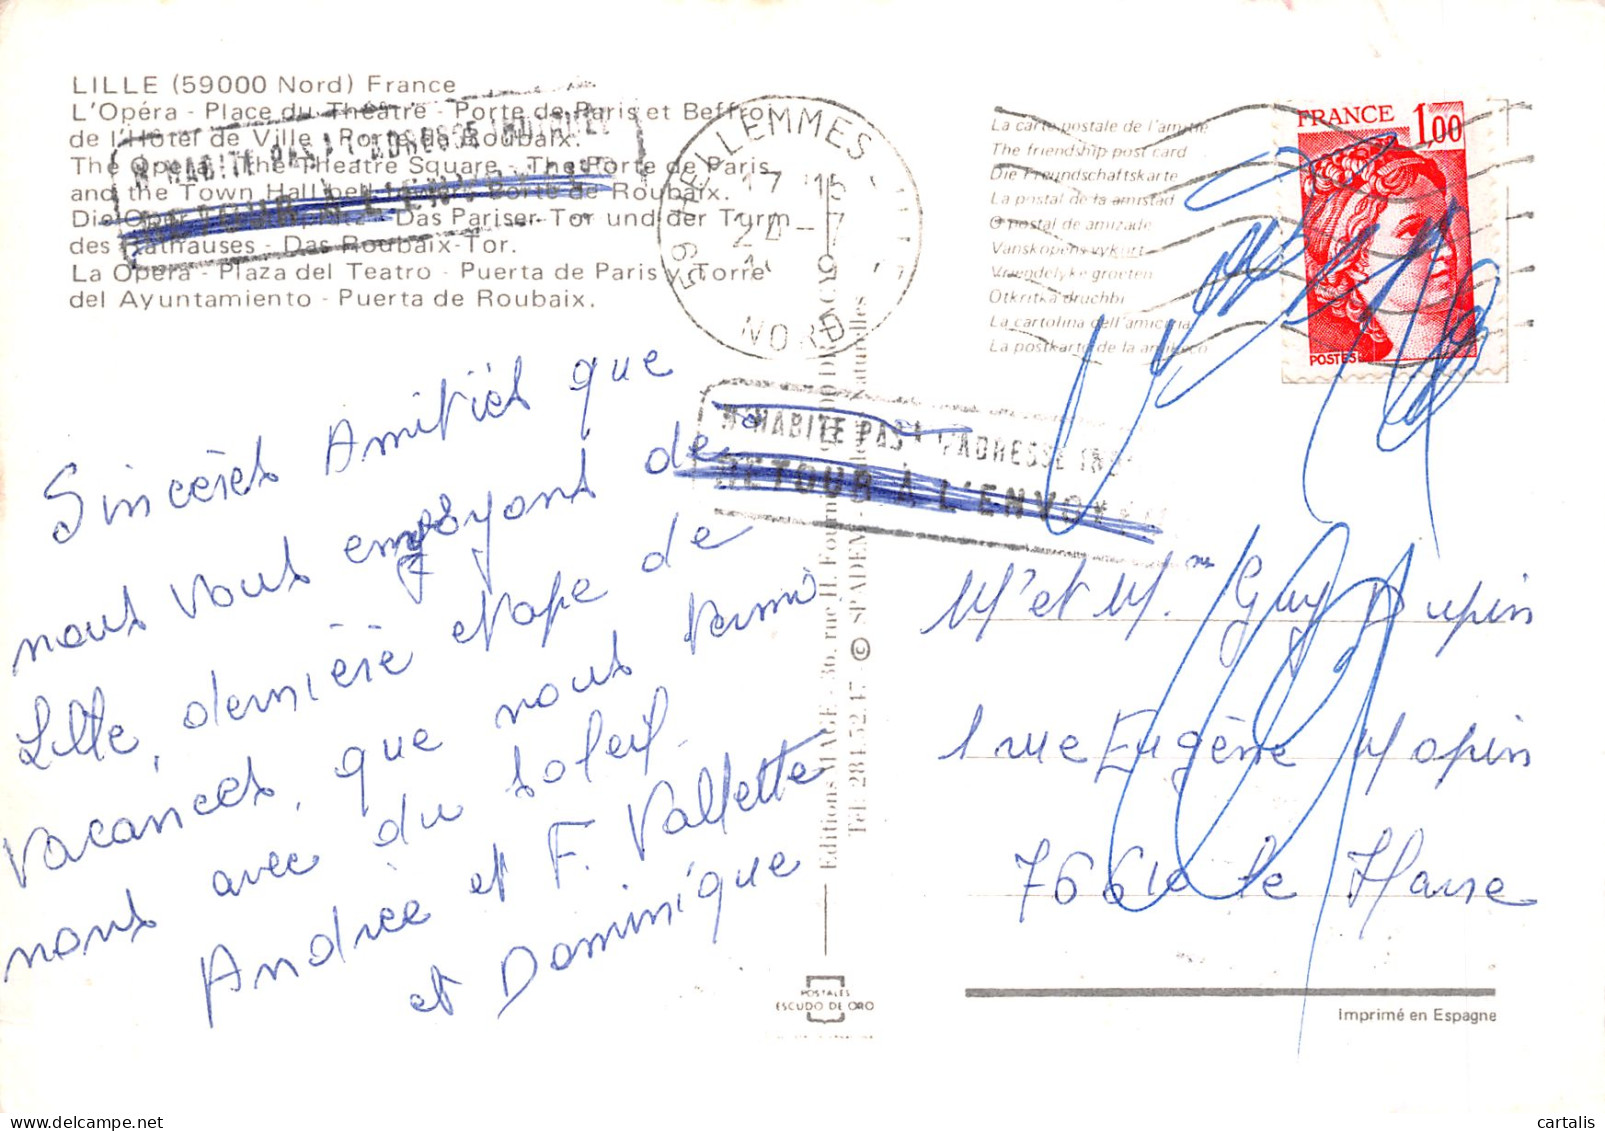 LILLE (59000 Nord) France
L'Opéra - Place du Théâtre - Porte de Paris et Beffroi
de l'Hôtel de Ville - Porte de Roubaix.
The Opera - the Theatre Square - The Porte de Paris
and the Town Hall belfry Porte de Roubaix.
Die Oper - Das Pariser Tor und der Turm
des Rathauses - Das Roubaix-Tor.
La Opera - Plaza del Teatro - Puerta de Paris y Torre
del Ayuntamiento - Puerta de Roubaix.
N'HABITE PAS A L'ADRESSE INDIQUÉE
RETOUR A L'ENVOYEUR
LEMMES
17 15
24-7
59
NORD
La carte postale de l'amitié
The friendship post card
Die Freundschaftskarte
La postal de la amistad
O postal de amizade
Vanskopens vykort
Vriendelyke groeten
Otkritka druchbi
La cartolina dell'amicizia
La postkarto de la amikeco
FRANCE 1,00
POSTES
N'HABITE PAS A L'ADRESSE IND
RETOUR A L'ENVOY
Sincères Amitiés que
nous vous envoyons de
Lille, dernière etape de
Vacances, que nous termi
nous avec du soleil.
Andrée et F. Vallette
et Dominique
Mr et Mme Guy Dupin
1 rue Eugène Mopin
7661 le Havre
Editions MAGE - 36, rue H.
Tél. 284.52.17 © SPADEM
naturelles
POSTALES
ESCUDO DE ORO
Imprimé en Espagne
cartalis
www.delcampe.net